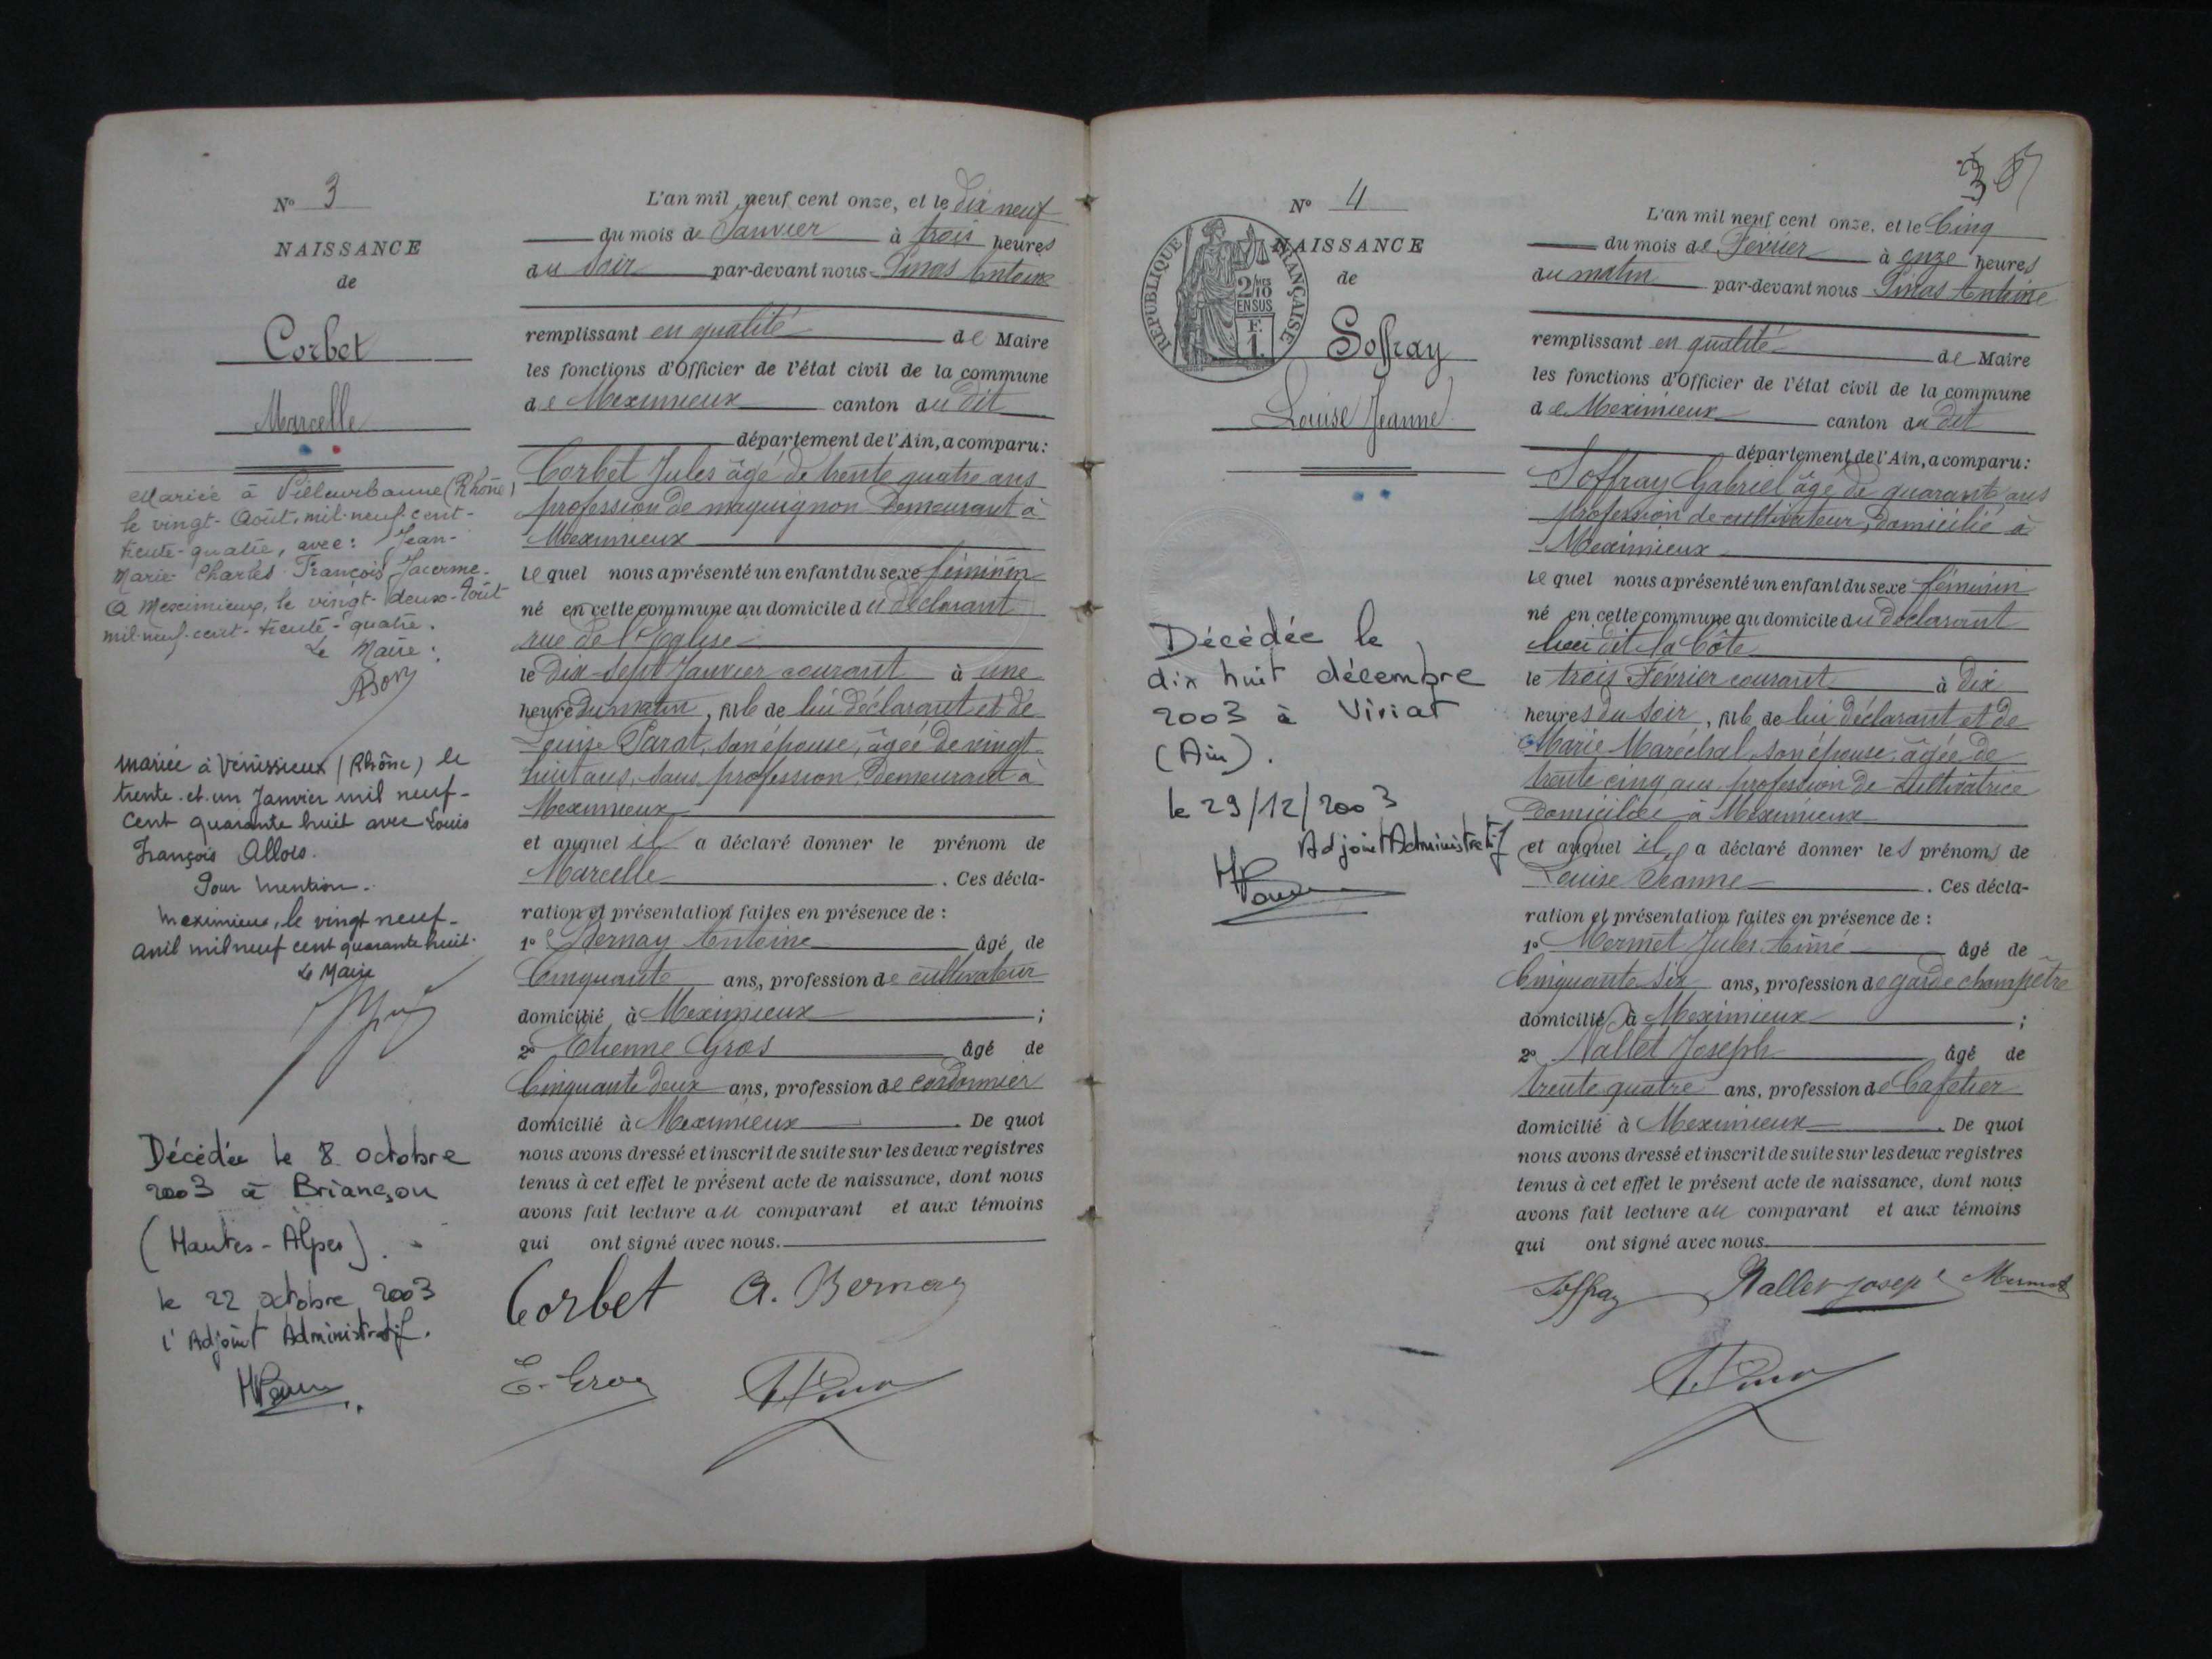 N° 3
NAISSANCE
de
Corbet
Marcelle
Mariée à Villeurbanne (Rhône)
le vingt-Août, mil-neuf-cent-
trente-quatre, avec: Jean-
Marie-Charles-François Jacerme-
A Meximieux, le vingt-deux-Août
mil-neuf-cent-trente-quatre.
Le Maire:
mariée à Vénissieux (Rhône) le
trente-et-un Janvier mil neuf-
cent quarante huit avec Louis
François Allois.
Pour mention.
Meximieux, le vingt neuf-
avril mil neuf cent quarante huit.
Le Maire
Décédée le 8 octobre
2003 à Briançon
(Hautes-Alpes).
le 22 octobre 2003
l'Adjoint Administratif.
L'an mil neuf cent onze, et le dix neuf
du mois de Janvier à trois heures
du soir par-devant nous Pinas Antoine
remplissant en qualité de Maire
les fonctions d'Officier de l'état civil de la commune
de Meximieux canton du dit
département de l'Ain, a comparu:
Corbet Jules âgé de trente quatre ans
profession de maquignon Demeurant à
Meximieux
lequel nous a présenté un enfant du sexe féminin
né en cette commune au domicile du déclarant
rue de l'Eglise
le dix-sept Janvier courant à une
heure du matin, fille de lui déclarant et de
Louise Parat, son épouse, âgée de vingt
huit ans, sans profession, Demeurant à
Meximieux
et auquel il a déclaré donner le prénom de
Marcelle. Ces décla-
ration et présentation faites en présence de:
1° Bernay Antoine âgé de
Cinquante ans, profession de cultivateur
domicilié à Meximieux;
2° Etienne Gros âgé de
Cinquante deux ans, profession de cordonnier
domicilié à Meximieux. De quoi
nous avons dressé et inscrit de suite sur les deux registres
tenus à cet effet le présent acte de naissance, dont nous
avons fait lecture au comparant et aux témoins
qui ont signé avec nous.
Corbet A. Bernay
E. Gros
N° 4
RÉPUBLIQUE FRANÇAISE
2/10 MES
EN SUS
F.
1.
NAISSANCE
de
Soffray
Louise Jeanne
Décédée le
dix huit décembre
2003 à Viriat
(Ain).
le 29/12/2003
Adjoint Administratif
3
L'an mil neuf cent onze, et le Cinq
du mois de Février à onze heures
du matin par-devant nous Pinas Antoine
remplissant en qualité de Maire
les fonctions d'Officier de l'état civil de la commune
de Meximieux canton du dit
département de l'Ain, a comparu:
Soffray Gabriel âgé de quarante ans
profession de cultivateur, domicilié à
Meximieux
lequel nous a présenté un enfant du sexe féminin
né en cette commune au domicile du déclarant
lieu dit la Côte
le trois Février courant à dix
heures du soir, fille de lui déclarant et de
Marie Maréchal, son épouse, âgée de
trente cinq ans profession de cultivatrice
domiciliée à Meximieux
et auquel il a déclaré donner les prénoms de
Louise Jeanne. Ces décla-
ration et présentation faites en présence de:
1° Mermet Jules Aimé âgé de
Cinquante six ans, profession de garde champêtre
domicilié à Meximieux;
2° Nallet Joseph âgé de
trente quatre ans, profession de Cafetier
domicilié à Meximieux. De quoi
nous avons dressé et inscrit de suite sur les deux registres
tenus à cet effet le présent acte de naissance, dont nous
avons fait lecture au comparant et aux témoins
qui ont signé avec nous.
Soffray Nallet Joseph Mermet